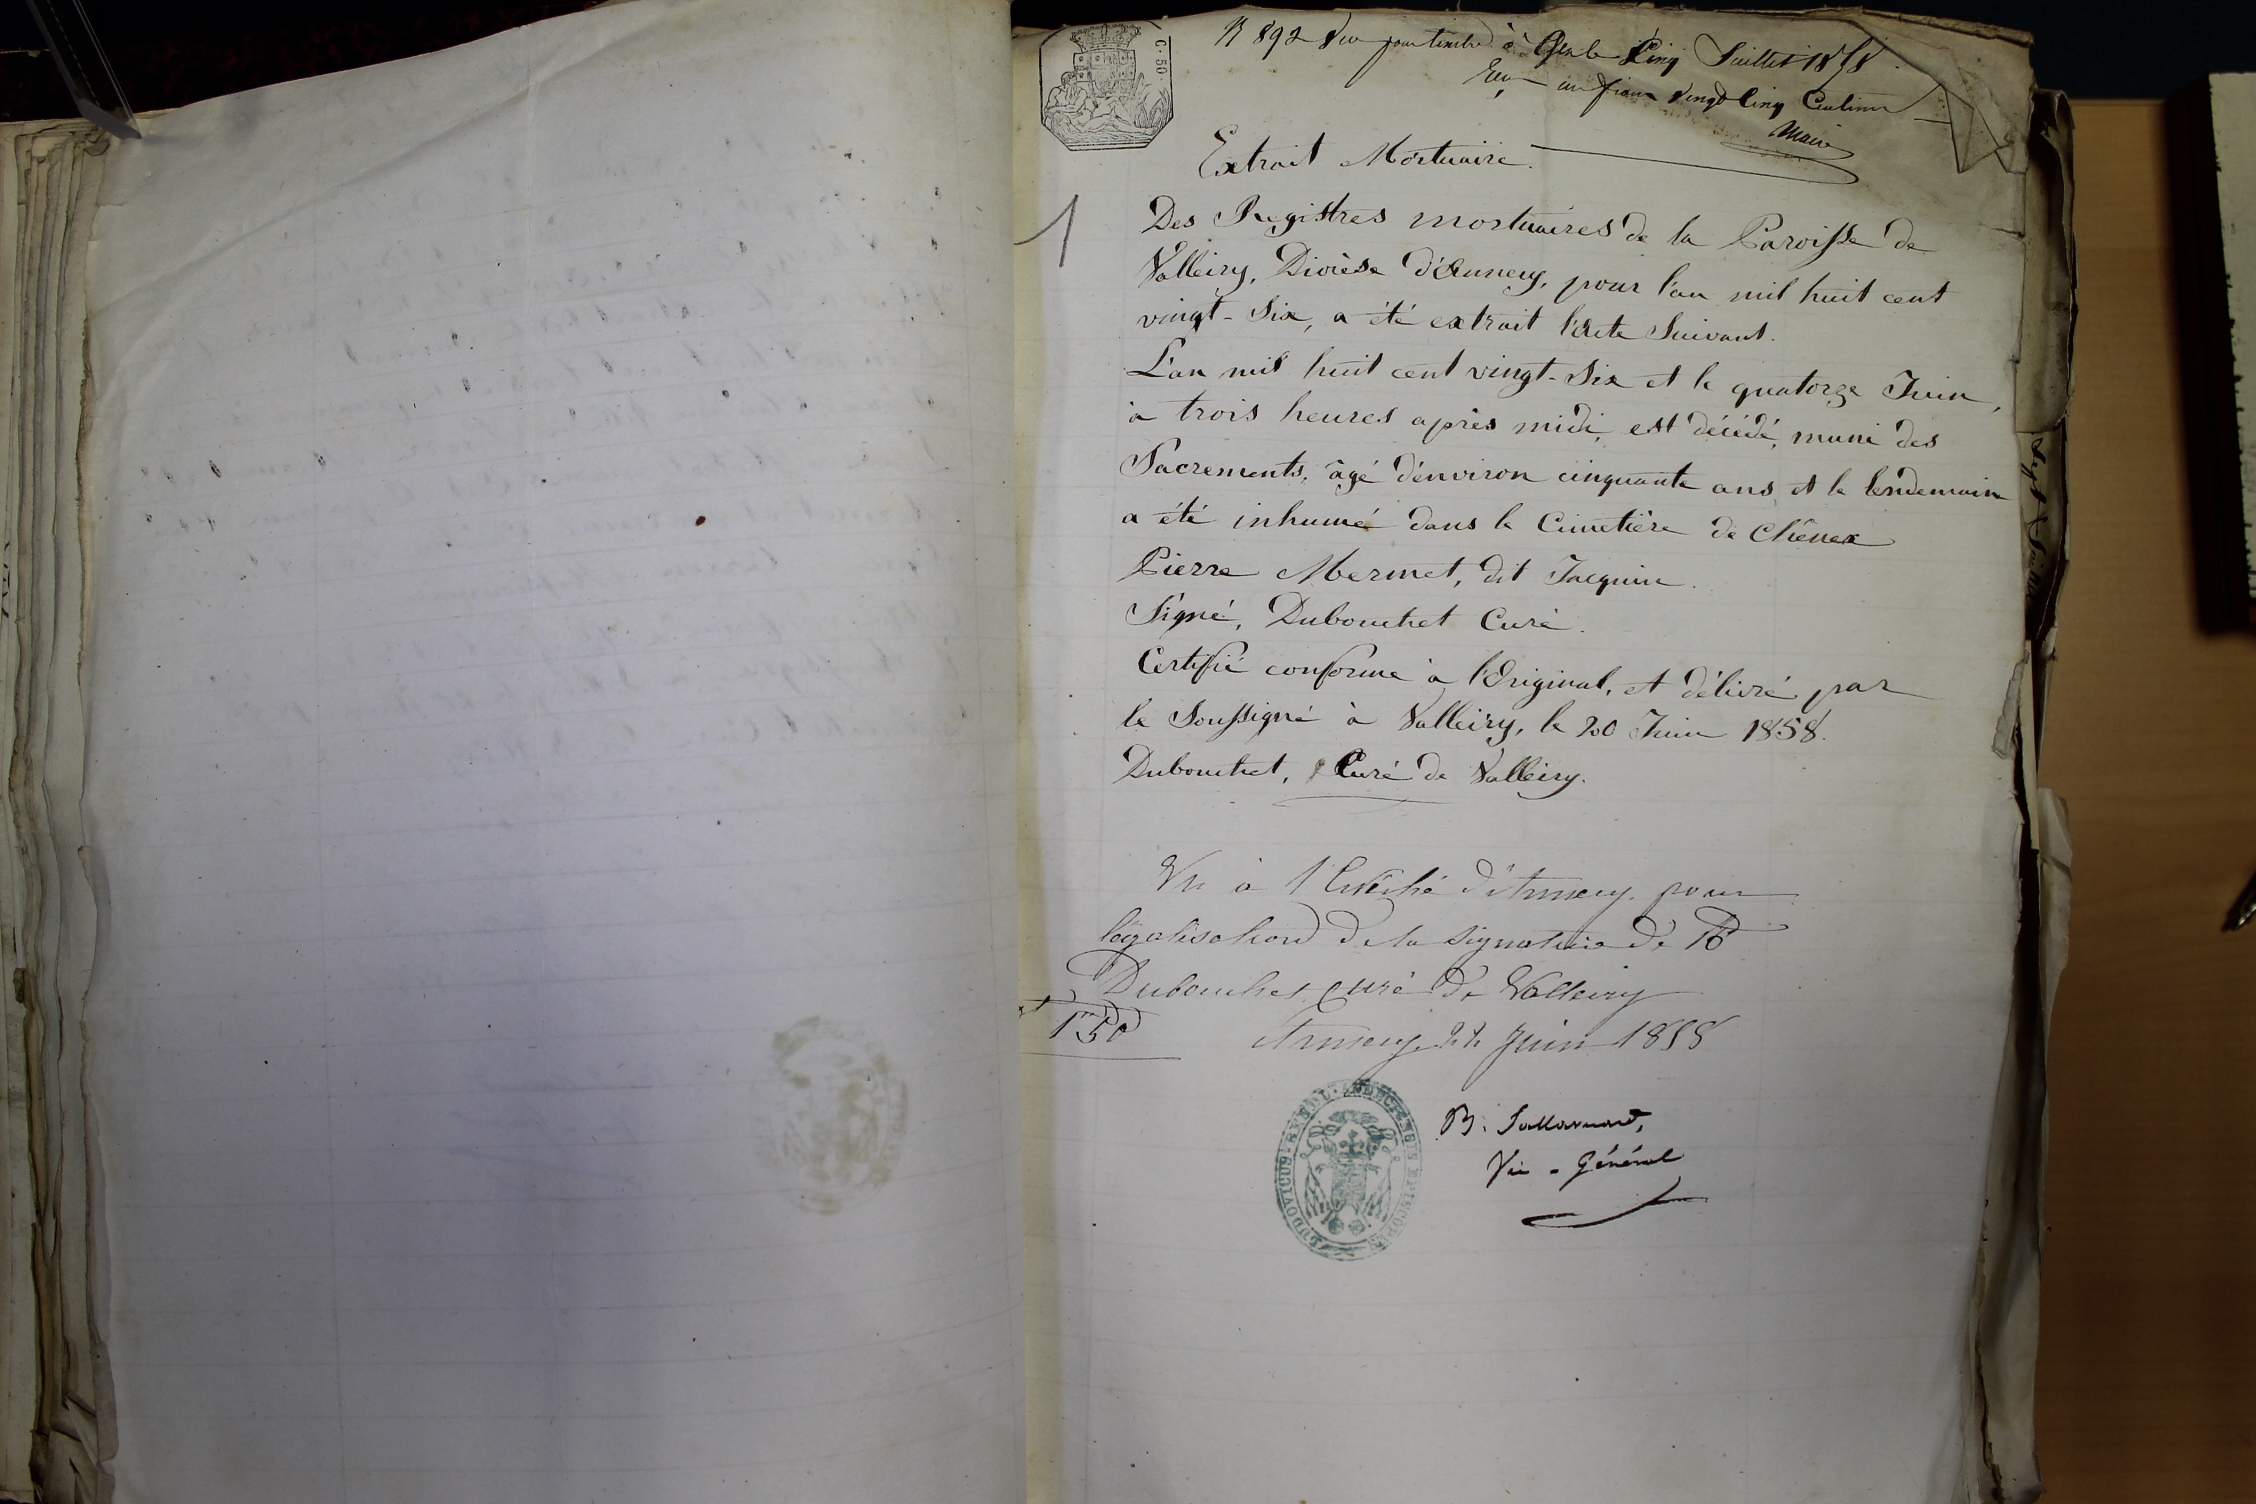 C. 50
N 892 Vu pour timbre à Gex le Cinq Juillet 1858
Reçu un franc vingt Cinq Centimes
Extrait Mortuaire.
1
Des Registres mortuaires de la Paroisse de
Valleiry, Diocèse d'Annecy, pour l'an mil huit cent
vingt-six, a été extrait l'acte suivant.
L'an mil huit cent vingt-six et le quatorze Juin,
à trois heures après midi, est décédé, muni des
Sacrements, âgé d'environ cinquante ans, et le lendemain
a été inhumé dans le Cimetière de Chênex
Pierre Mermet, dit Jacquin.
Signé, Dubouchet Curé.
Certifié conforme à l'Original, et délivré par
le Soussigné à Valleiry, le 20 Juin 1858.
Dubouchet, Curé de Valleiry.
Vu à l'Evêché d'Annecy pour
légalisation de la signature de Rd
Dubouchet curé de Valleiry
1 50
Annecy 22 Juin 1858
LUDOVICUS RENDU ANNECIENSIS EPISCOPUS
Vic-Général